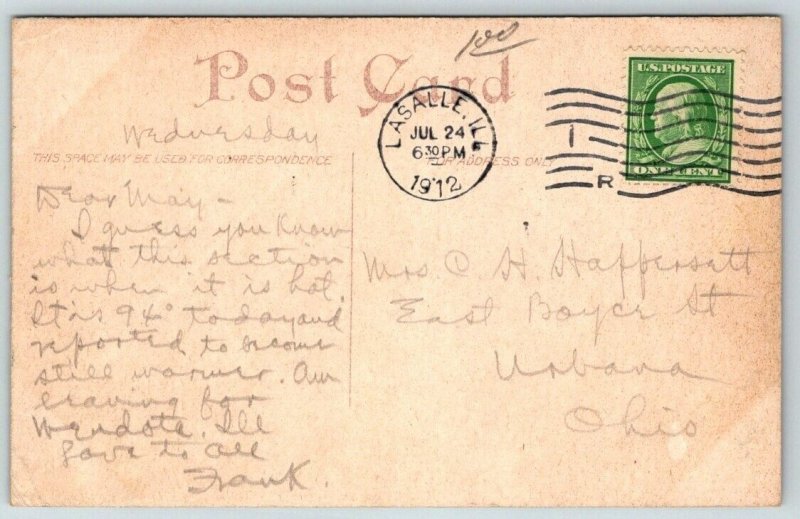 100
Post Card
U.S. POSTAGE
ONE CENT
LASALLE, ILL
JUL 24
6 30 PM
1912
R
Wednesday
THIS SPACE MAY BE USED FOR CORRESPONDENCE
FOR ADDRESS ONLY
Dear May –
I guess you know
what this section
is when it is hot.
It is 94° today and
reported to become
still warmer. Am
leaving for
Mendota, Ill
Love to all
Frank.
Mrs C. H. Haffersett
East Boyce St
Urbana
Ohio